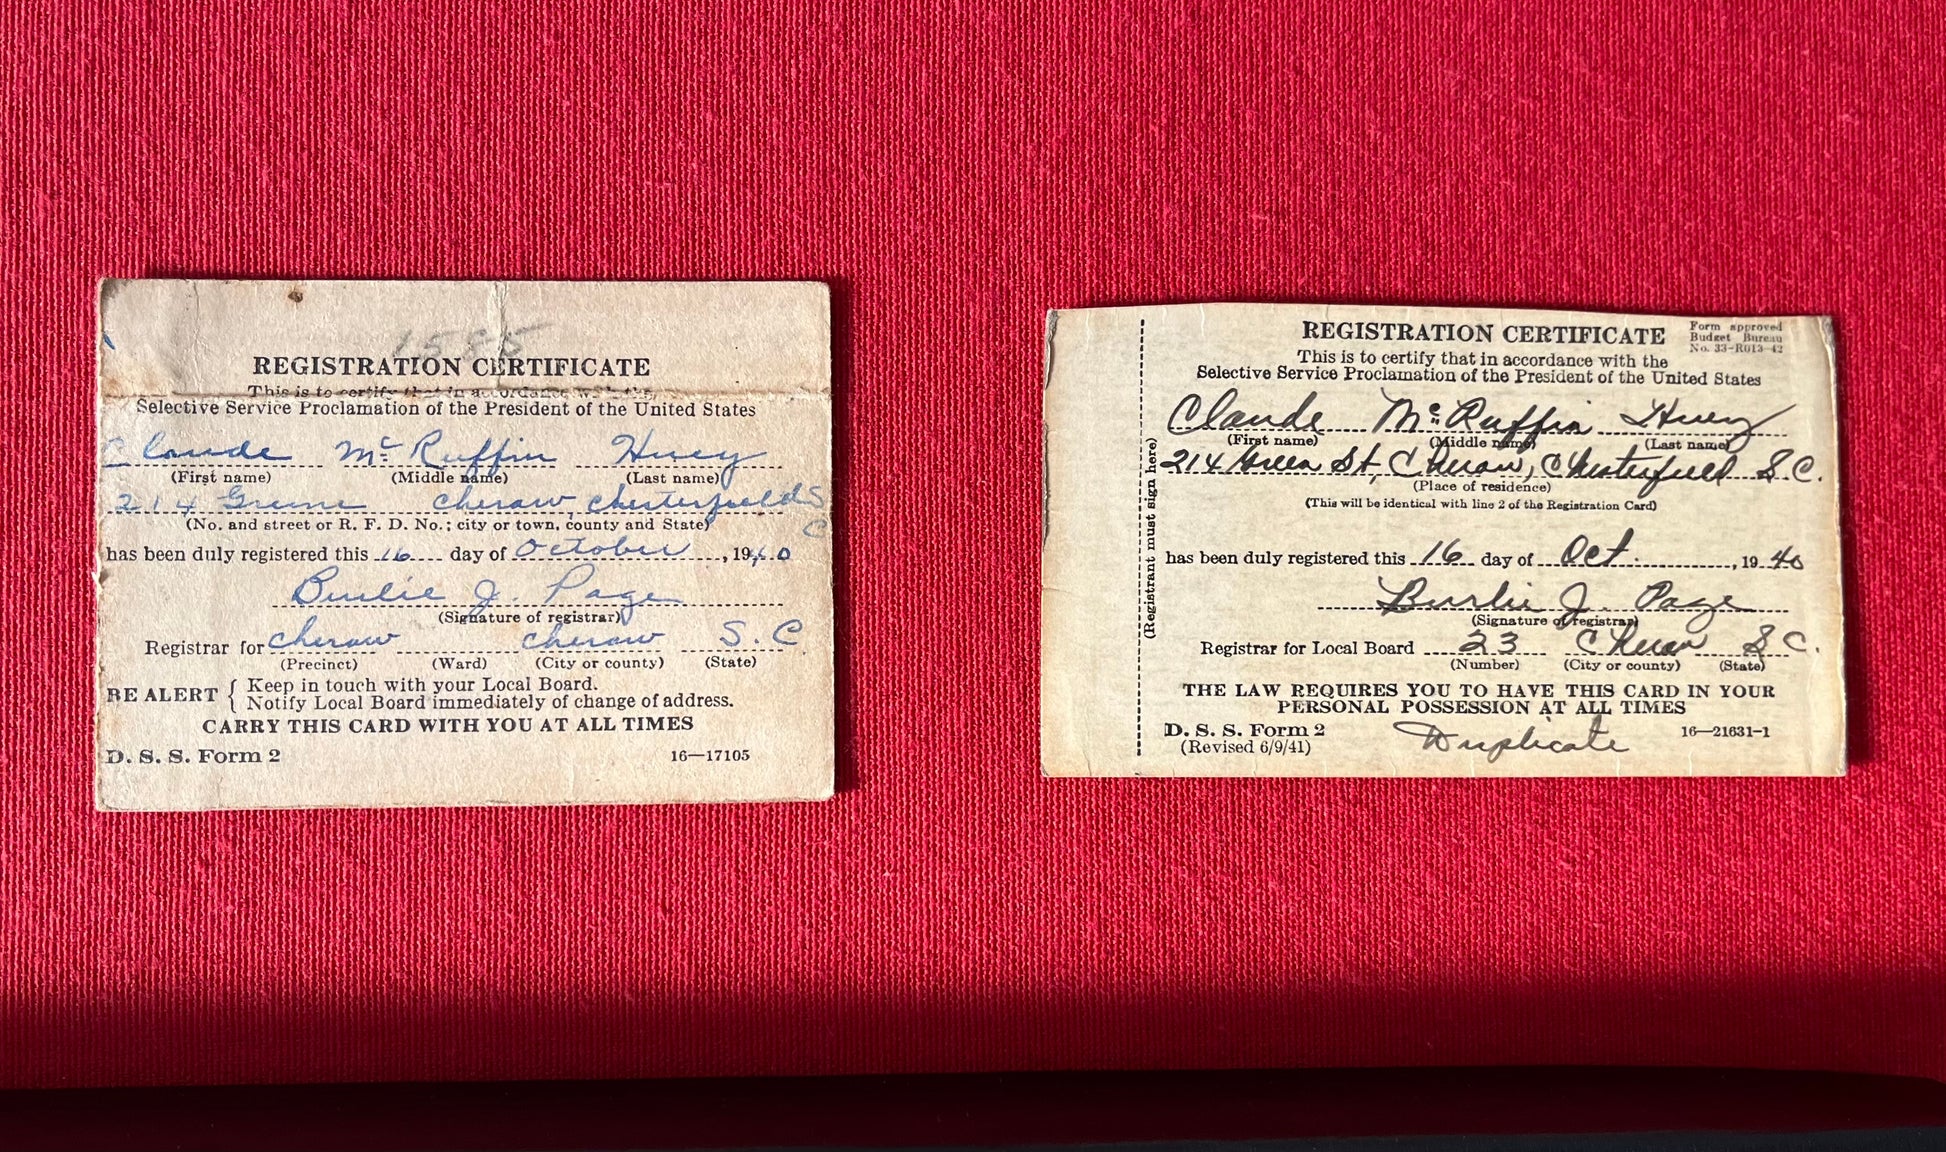 1585
REGISTRATION CERTIFICATE
This is to certify that in accordance with the
Selective Service Proclamation of the President of the United States
Claude Mc Ruffin Huey
(First name) (Middle name) (Last name)
214 Greene Cheraw, Chesterfield S
C
(No. and street or R. F. D. No.; city or town, county and State)
has been duly registered this 16 day of October, 1940
Burlie J. Page
(Signature of registrar)
Registrar for Cheraw Cheraw S. C
(Precinct) (Ward) (City or county) (State)
BE ALERT { Keep in touch with your Local Board.
Notify Local Board immediately of change of address.
CARRY THIS CARD WITH YOU AT ALL TIMES
D. S. S. Form 2 16—17105
REGISTRATION CERTIFICATE
Form approved
Budget Bureau
No. 33-R013-42
This is to certify that in accordance with the
Selective Service Proclamation of the President of the United States
Claude Mc Ruffin Huey
(First name) (Middle name) (Last name)
214 Green St, Cheraw, Chesterfield S.C.
(Place of residence)
(This will be identical with line 2 of the Registration Card)
(Registrant must sign here)
has been duly registered this 16 day of Oct., 1940
Burlie J. Page
(Signature of registrar)
Registrar for Local Board 23 Cheraw S.C.
(Number) (City or county) (State)
THE LAW REQUIRES YOU TO HAVE THIS CARD IN YOUR
PERSONAL POSSESSION AT ALL TIMES
D. S. S. Form 2 16—21631-1
(Revised 6/9/41) Duplicate